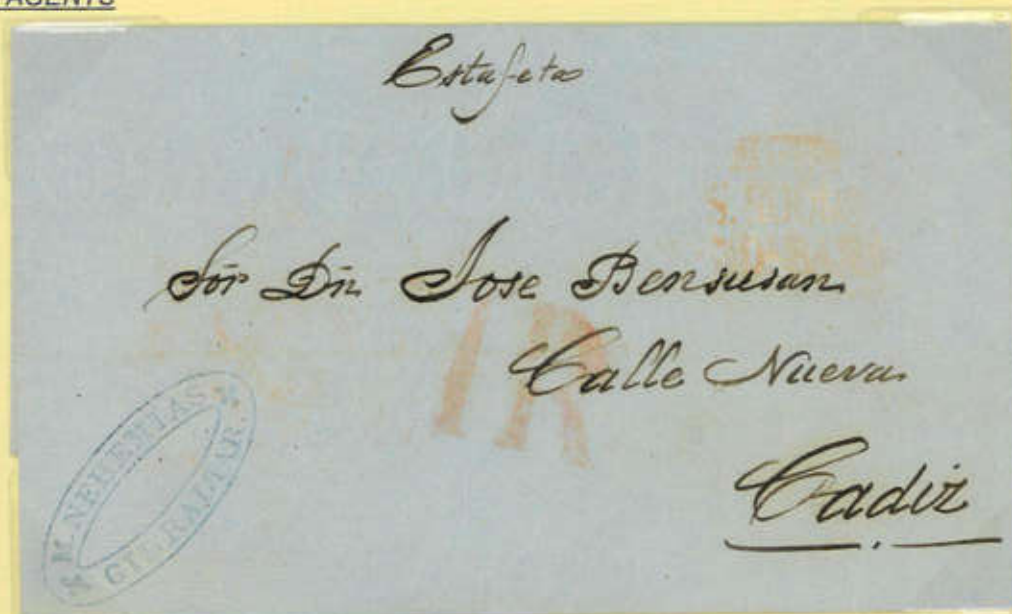 AGENTS
Estafeta
Sór Dn Jose Bensusan
1R
Calle Nueva
Cadiz
M. NEHEMIAS
GIBRALTAR.